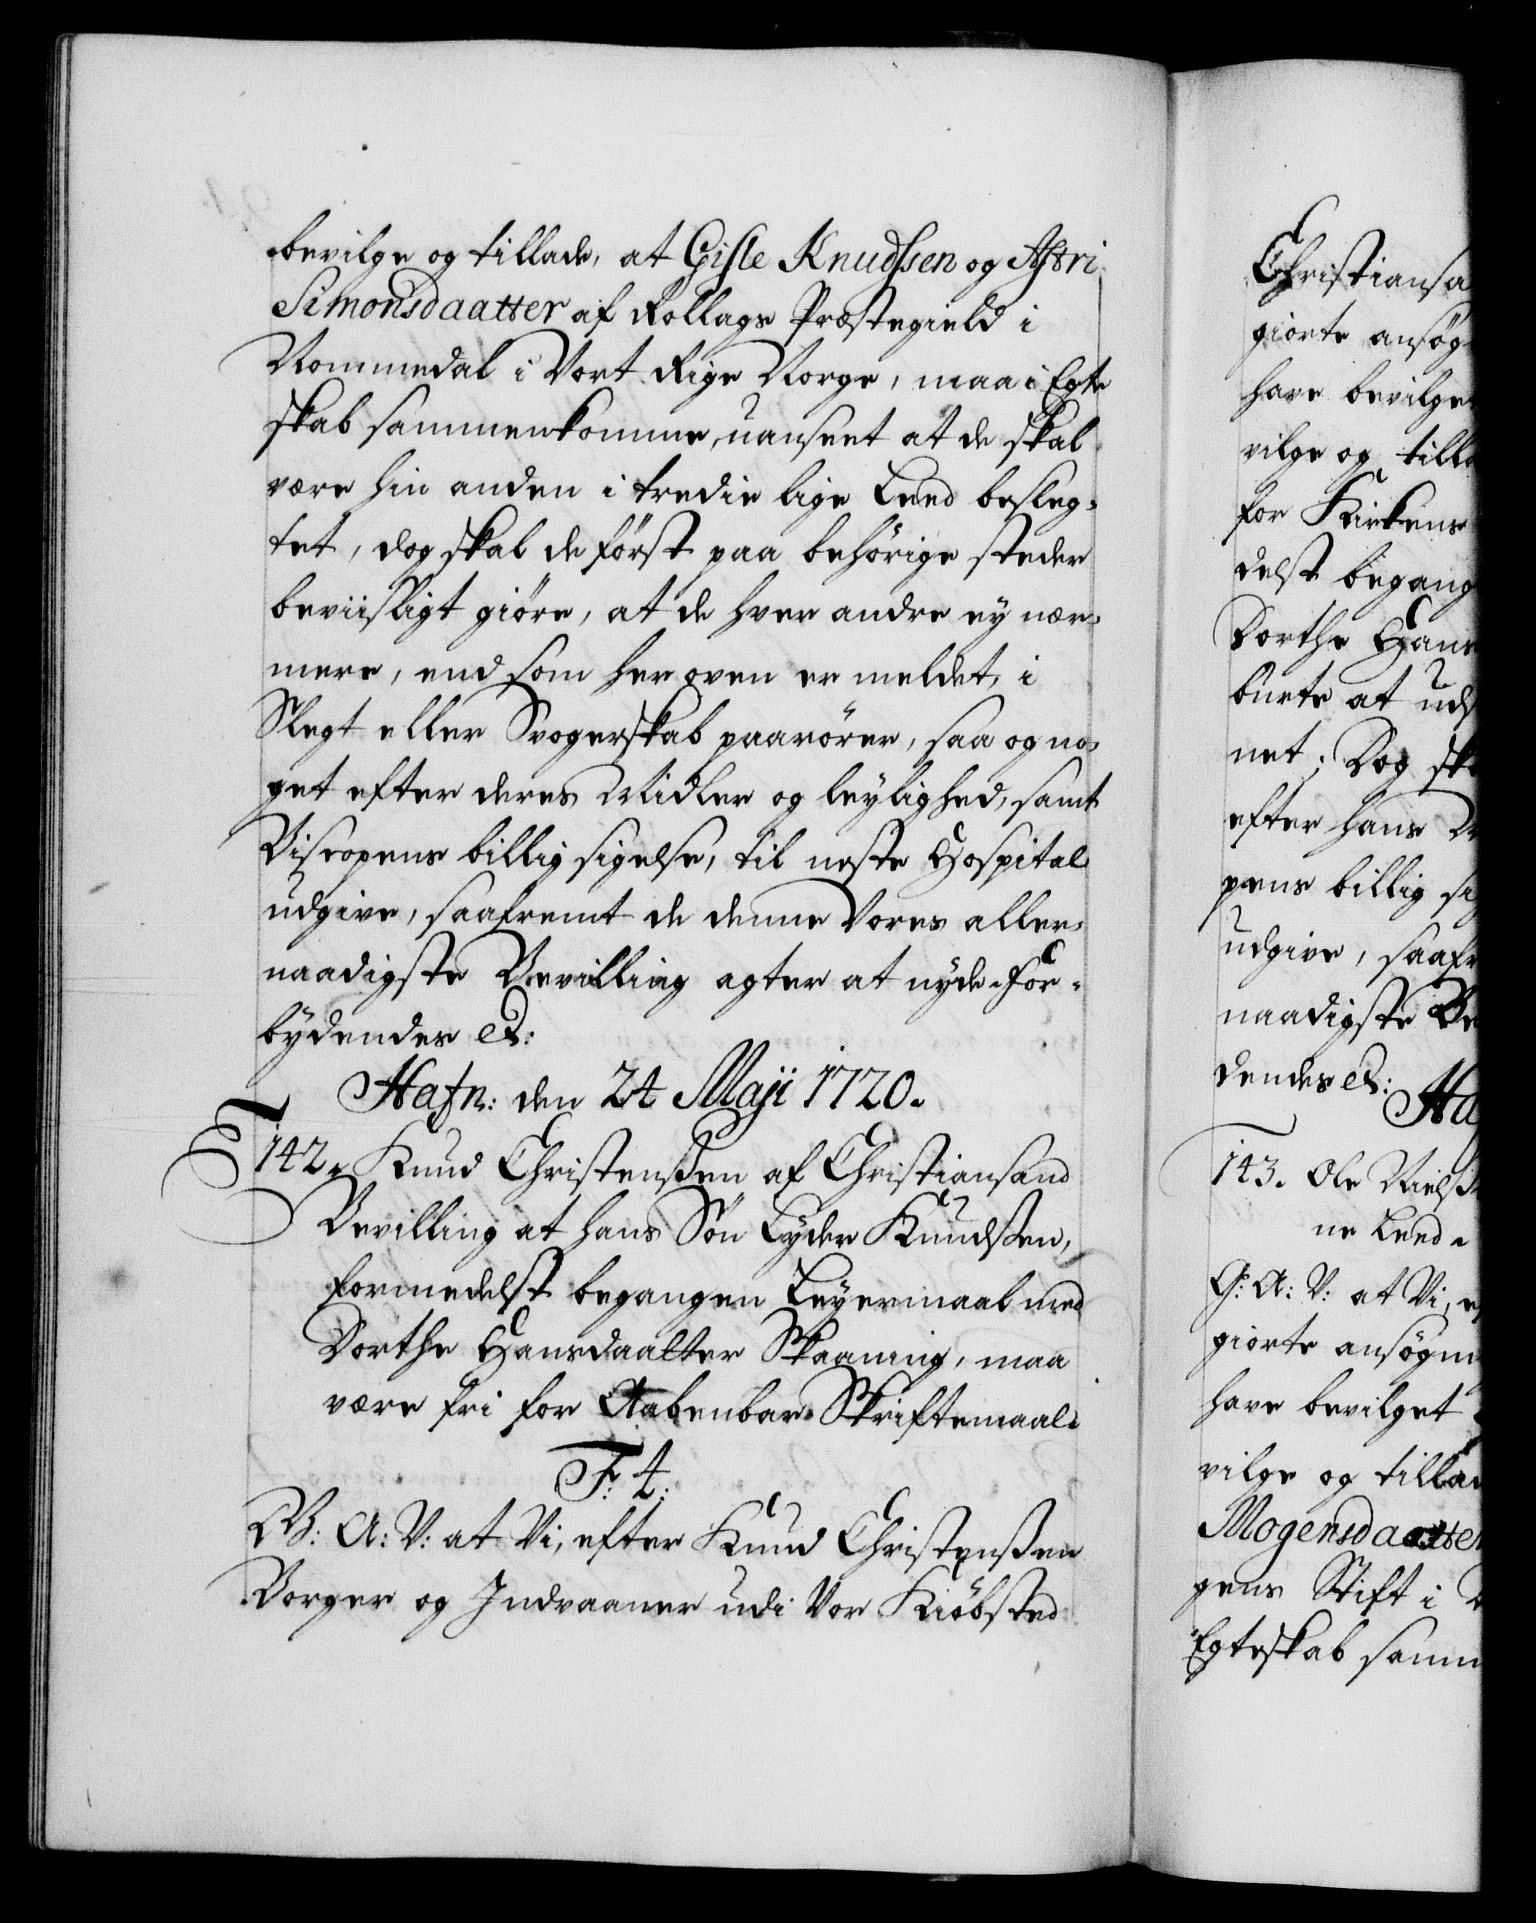 bevilge og tillade, at Gisle Knudssen og Astri
Simonsdaatter af Rollags Præstegield i
Nommedal i Vort Rige Norge, maa i Egte
skab sammenkomme, uanseet at de skal
være hin anden i tredie lige Leed besleg-
tet, dog skal de først paa behörige steder
beviisligt giöre, at de hver andre ey nær-
mere, end som her oven er meldet, i
Slegt eller Svogerskab paarörer, saa og no-
get efter deres Midler og leylighed, samt
Biscopens billig sigelse, til neste Hospital
udgive, saafremt de denne Vores aller-
naadigste Bevilling agter at nyde. For-
bydendes etc:
Hafn: den 24 Maji 1720.
142. Knud Christenßen af Christiansand
Bevilling at hans Sön Lyder Knudsßen,
formedelst begangen Leyermaal med
Dorthe Hansdaatter Skaaning, maa
være fri for Aabenbar Skriftemaal.
F: 4:
G: A: V: at Vi, efter Knud Christenßen
Borger og Indvaaner udi Vor Kiöbsted
Christiansa
giorte ansög
have bevilget
vilge og tilla
for Kirkens
delst begang
Dorthe Hans
burte at uds
net; Dog ska
efter hans
pens billig si
udgive, saafr
naadigste Be
dendes etc:
Ha
143. Ole Nielß
ne Leed.
G: A: V: at Vi, e
giorte ansögn
have bevilget
vilge og tillad
Mogensdaatter
gens Stift i
Egteskab samm